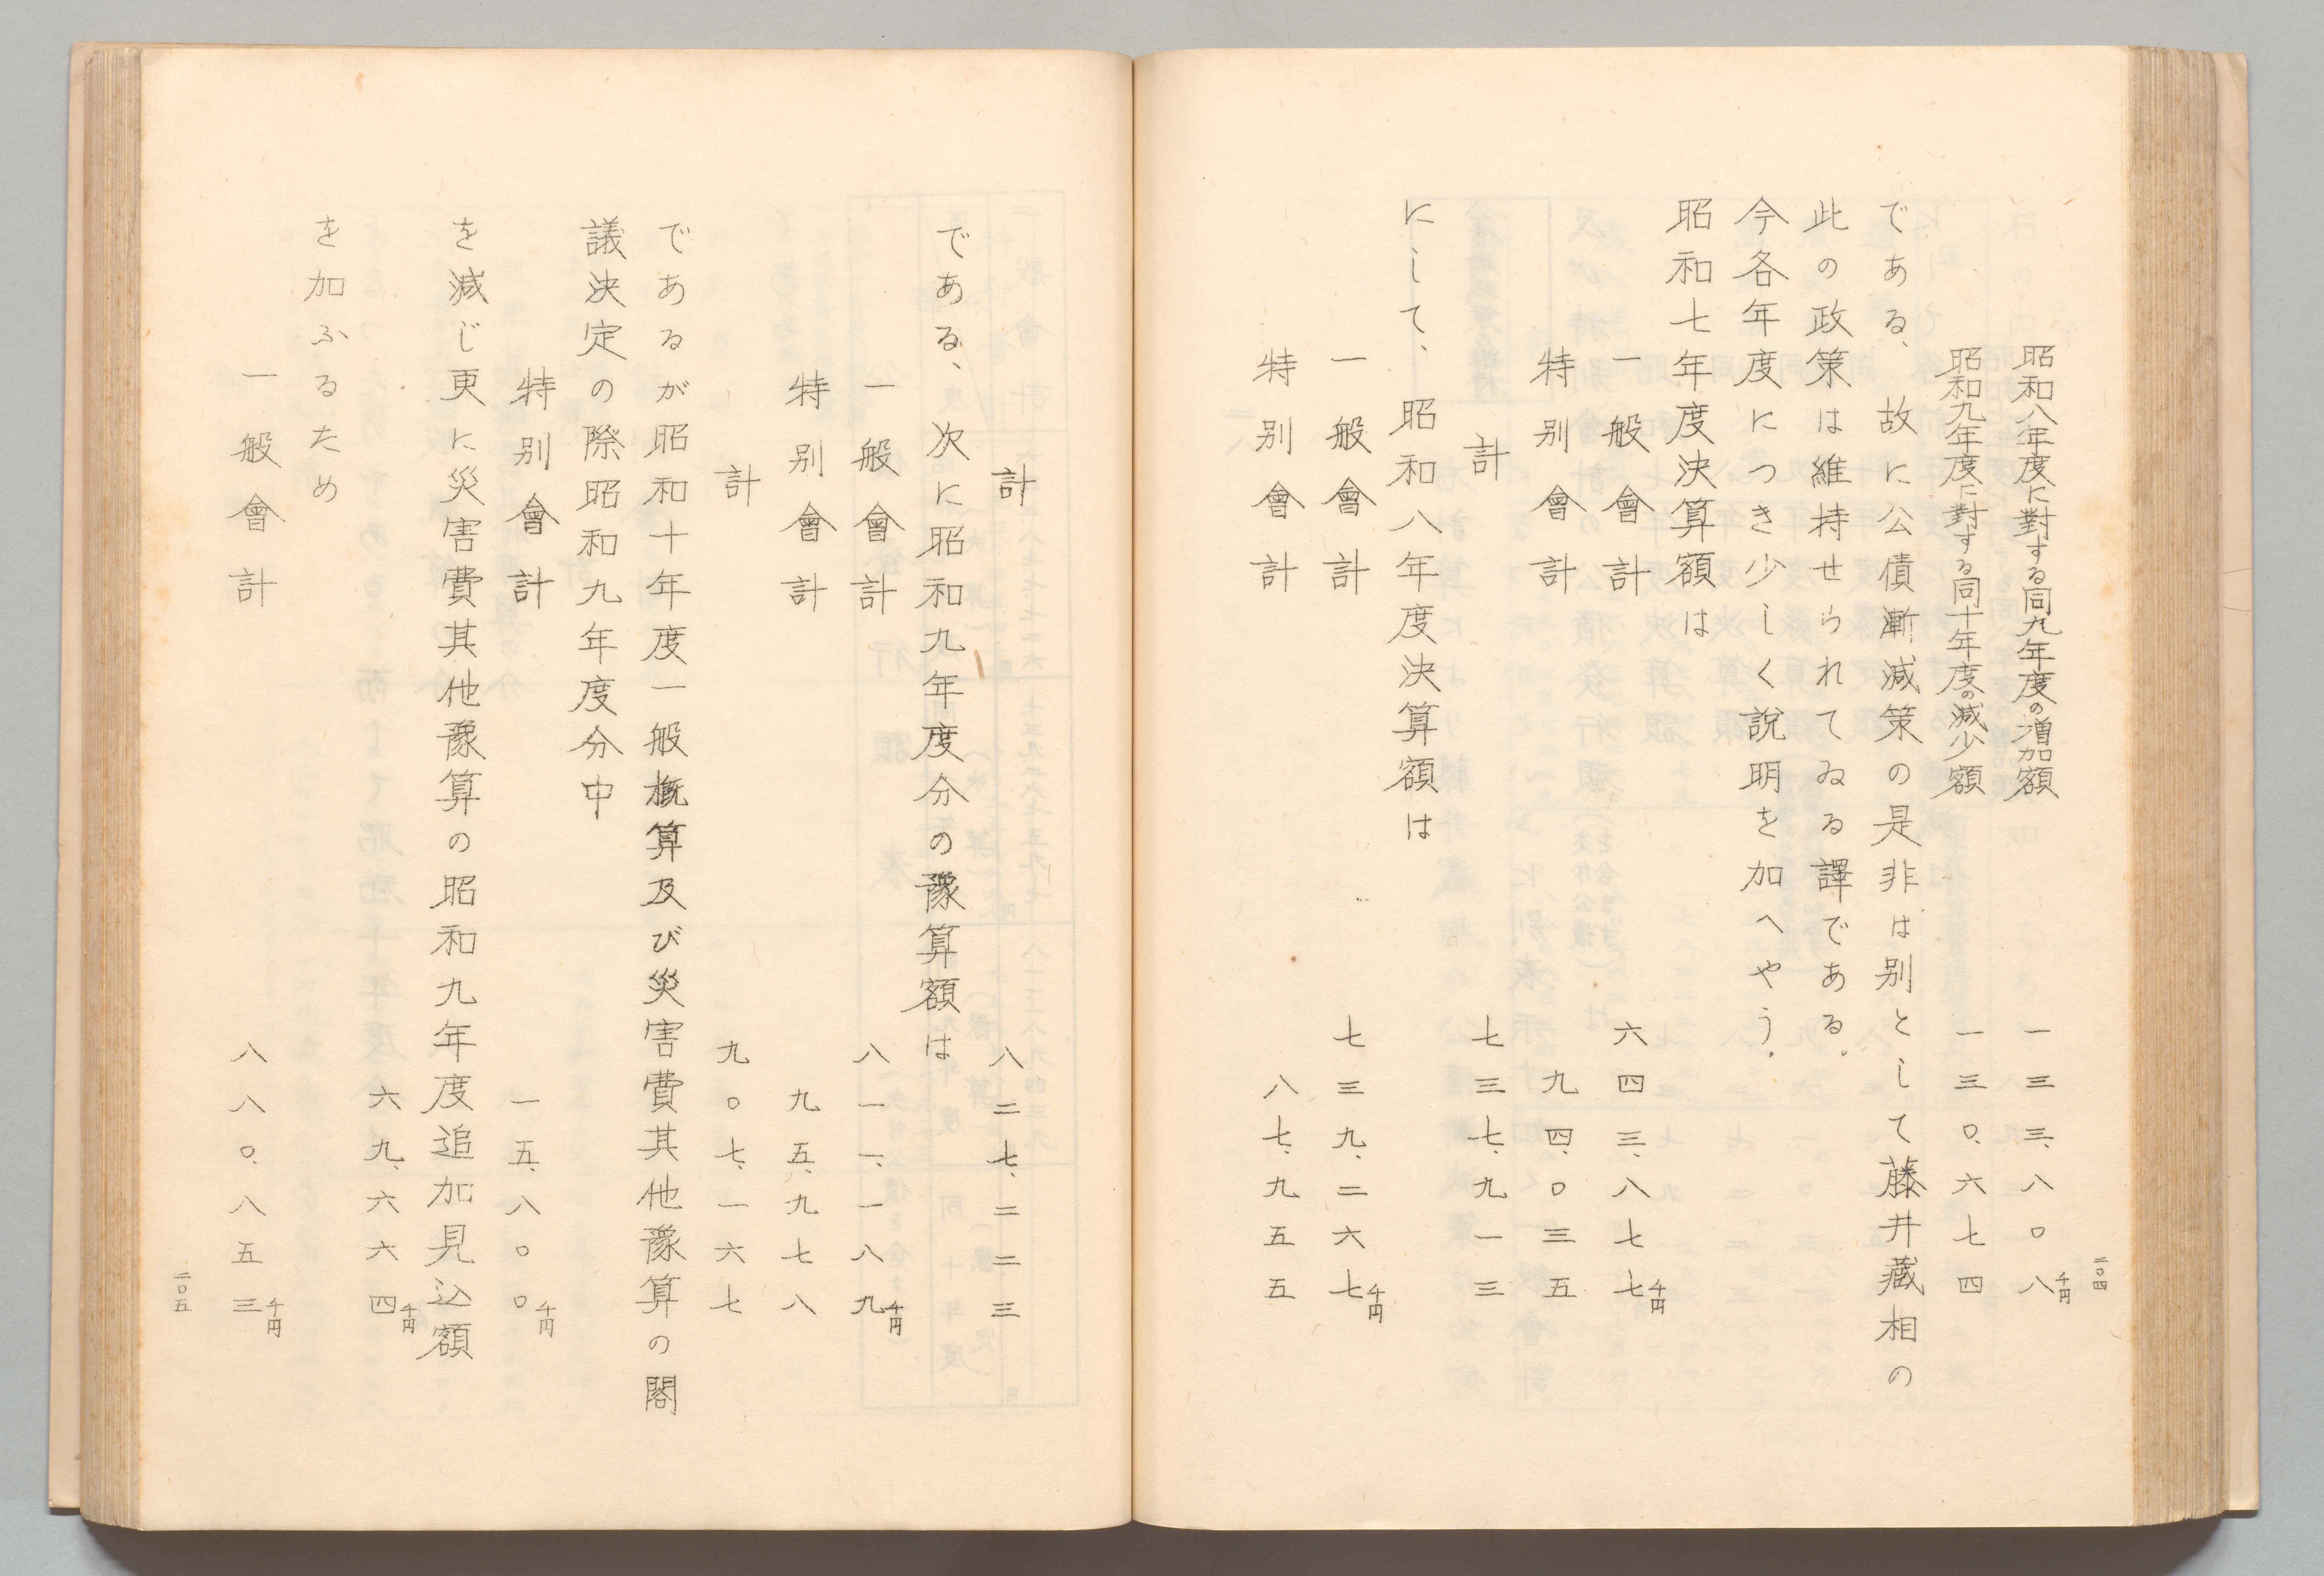 昭和八年度に對する同九年度の増加額　一三三、八〇八千円
昭和九年度に對する同十年度の減少額　一三〇、六七四
である、故に公債漸減策の是非は別として藤井蔵相の
此の政策は維持せられてゐる譯である。
今各年度につき少しく説明を加へやう。
昭和七年度決算額は
一般會計　六四三、八七七千円
特別會計　九四、〇三五
計　七三七、九一三
にして、昭和八年度決算額は
一般會計　七三九、二六七千円
特別會計　八七、九五五
二〇四
計　八二七、二二三
である、次に昭和九年度分の豫算額は
一般會計　八一一、一八九千円
特別會計　九五、九七八
計　九〇七、一六七
であるが昭和十年度一般概算及び災害費其他豫算の閣
議決定の際昭和九年度分中
特別會計　一五、八〇〇千円
を減じ更に災害費其他豫算の昭和九年度追加見込額
六九、六六四千円
を加ふるため
一般會計　八八〇、八五三千円
二〇五